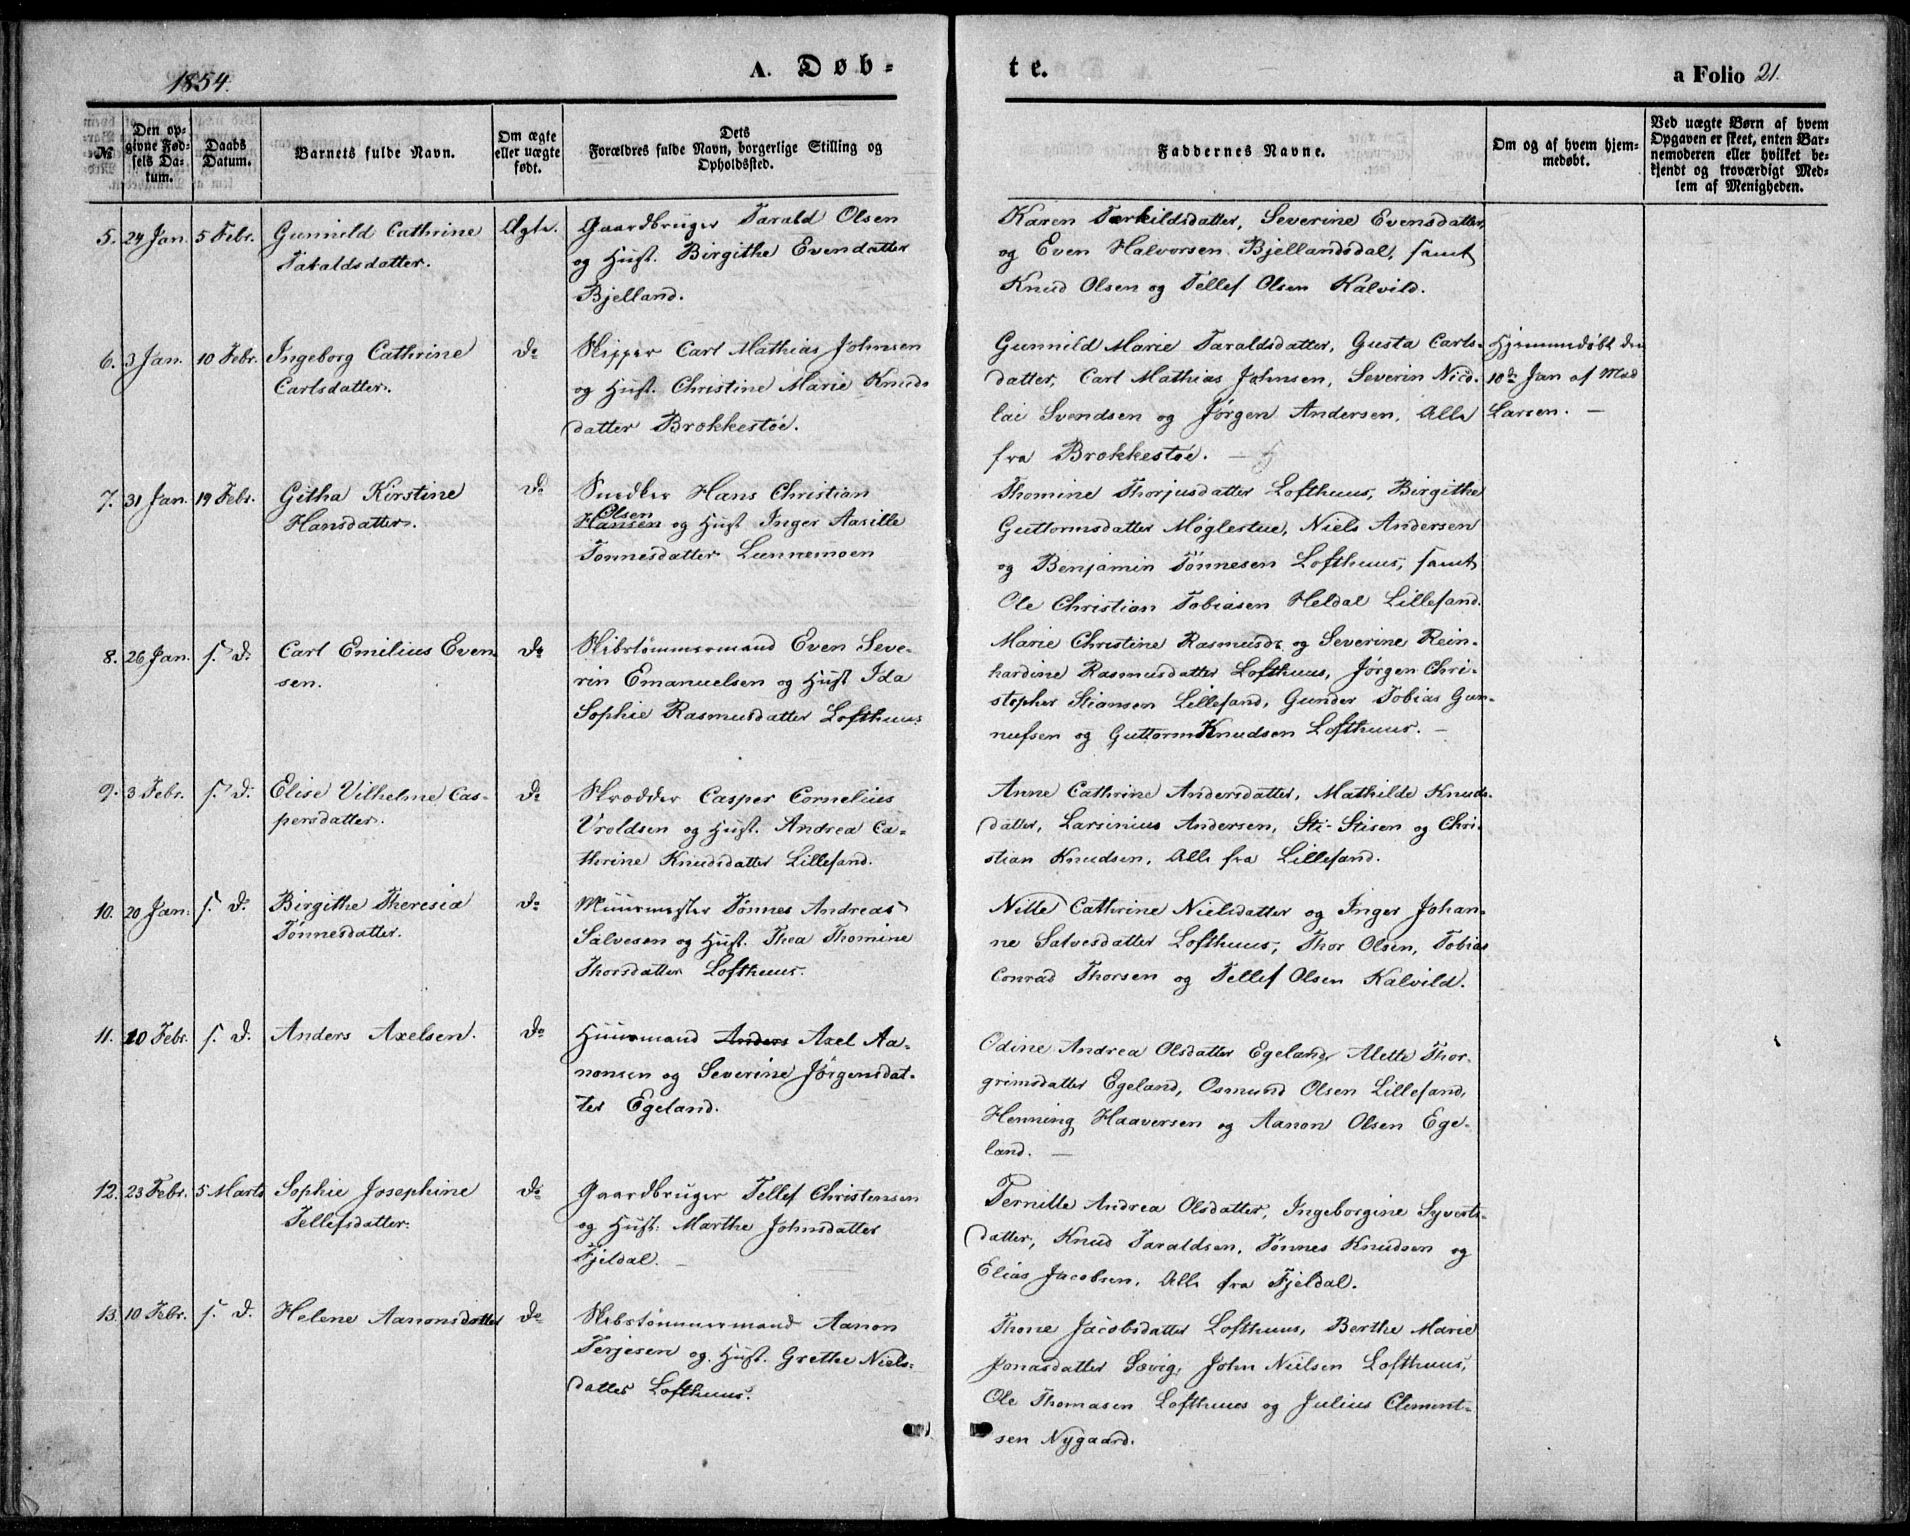 1854.
A. Døb-
te.
a Folio 21.
№
Den op-
givne Fød-
sels Da-
tum.
Daabs
Datum.
Barnets fulde Navn.
Om ægte
eller uægte
født.
Dets
Forældres fulde Navn, borgerlige Stilling og
Opholdssted.
Faddernes Navne.
Om og af hvem hjem-
medøbt.
Ved uægte Børn af hvem
Opgaven er skeet, enten Bar-
nemoderen eller hvilket be-
kjendt og troværdigt Med-
lem af Menigheden.
5. 24 Jan. 5 Febr.
Gunnild Cathrine
Taraldsdatter.
Ægte.
Gaardbruger Tarald Olsen
og Hust. Birgithe Evendatter
Bjelland.
Karen Tarkildsdatter, Severine Evensdatter,
og Even Halvorsen Bjellandsdal, samt
Knud Olsen og Tellef Olsen Kalvild.
6. 3 Jan. 10 Febr.
Ingeborg Cathrine
Carlsdatter.
do
Skipper Carl Mathias Johnsen
og Hust. Christine Marie Knuds
datter Brokkestøe.
Gunnild Marie Taraldsdatter, Gusta Carls-
datter, Carl Mathias Johnsen, Severin Nico-
lai Svendsen og Jørgen Andersen, Alle
fra Brokkestøe. —
Hjemmedøbt den
10de Jan af Mad
Larsen. —
7. 31 Jan. 19 Febr.
Githa Kirstine
Hansdatter.
do
Snedker Hans Christian
Olsen
Hansen og Hust Inger Aasille
Tønnesdatter Lunnemoen
Thomine Thorjusdatter Lofthuus, Birgithe
Guttormsdatter Møglestue, Niels Andersen
og Benjamin Tönnesen Lofthuus, samt
Ole Christian Tobiasen Heldal Lillesand.
8. 26 Jan. s. D.
Carl Emilius Even
sen.
do
Skibstømmermand Even Seve-
rin Emanuelsen og Hust Ida
Sophie Rasmusdatter Lofthuus
Marie Christine Rasmusdr og Severine Rein-
hardine Rasmusdatter Lofthuus, Jørgen Chri-
stopher Stiansen Lillesand, Gunder Tobias Gun-
nufsen og Guttorm Knudsen Lofthuus. —
9. 3 Febr. s. D.
Elise Vilhelme Cas-
persdatter.
do
Skrædder Casper Cornelius
Vroldsen og Hust. Andrea Ca-
thrine Knudsdatter Lillesand.
Anne Cathrine Andersdatter, Mathilde Knuds-
datter, Larsinius Andersen, Sti Stisen og Chri-
stian Knudsen, Alle fra Lillesand.
10. 20 Jan. s. D.
Birgithe Theresia
Tønnesdatter.
do
Muurmester Tönnes Andreas
Salvesen og Hust. Thea Thomine
Thorsdatter Lofthuus.
Nille Cathrine Nielsdatter og Inger Johan-
ne Salvesdatter Lofthuus, Thor Olsen, Tobias
Conrad Thorsen og Tellef Olsen Kalvild.
11. 10 Febr. s. D.
Anders Axelsen.
do
Huusmand Anders Axel Aa-
nonsen og Severine Jørgensdat-
ter Egeland.
Odine Andrea Olsdatter Egeland, Alette Thor-
grimsdatter Egeland, Osmund Olsen Lillesand,
Henning Haaversen og Aanon Olsen Ege-
land. —
12. 23 Febr. 5 Marts
Sophie Josephine
Tellefsdatter.
do
Gaardbruger Tellef Christensen
og Hust. Marthe Johnsdatter
Fjeldal. —
Pernille Andrea Olsdatter, Ingeborgine Syverts-
datter, Knud Taraldsen, Tönnes Knudsen og
Elias Jacobsen, Alle fra Fjeldal.
13. 10 Febr. s. D.
Helene Aanonsdatter
do
Skibstømmermand Aanon
Terjesen og Hust. Grethe Niels-
datter Lofthuus.
Thone Jacobsdatter Lofthuus, Berthe Marie
Jonasdatter Sævig, John Nielsen Lofthuus,
Ole Thomasen Lofthuus og Julius Clement-
sen Nygaard.